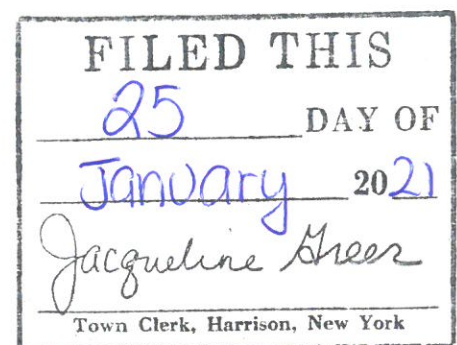 FILED THIS
25 DAY OF
January 2021
Jacqueline Greer
Town Clerk, Harrison, New York